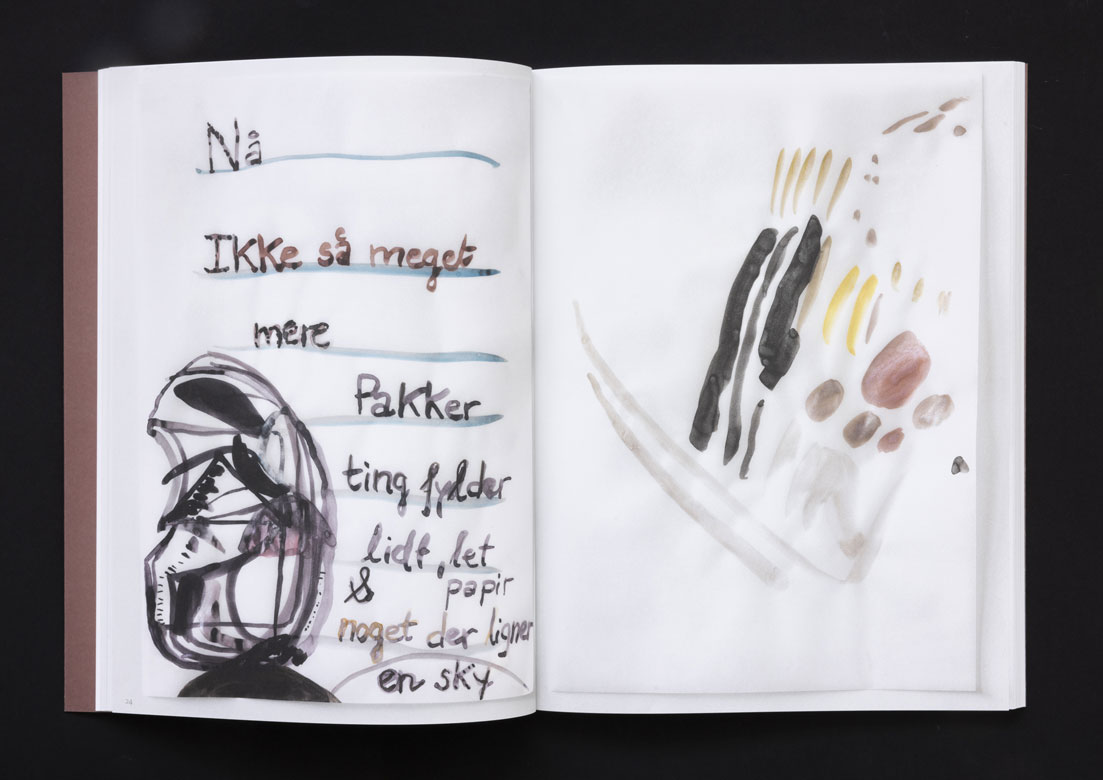 Nå
Ikke så meget
mere
Pakker
ting fylder
lidt, let
& papir
noget der ligner
en sky
24